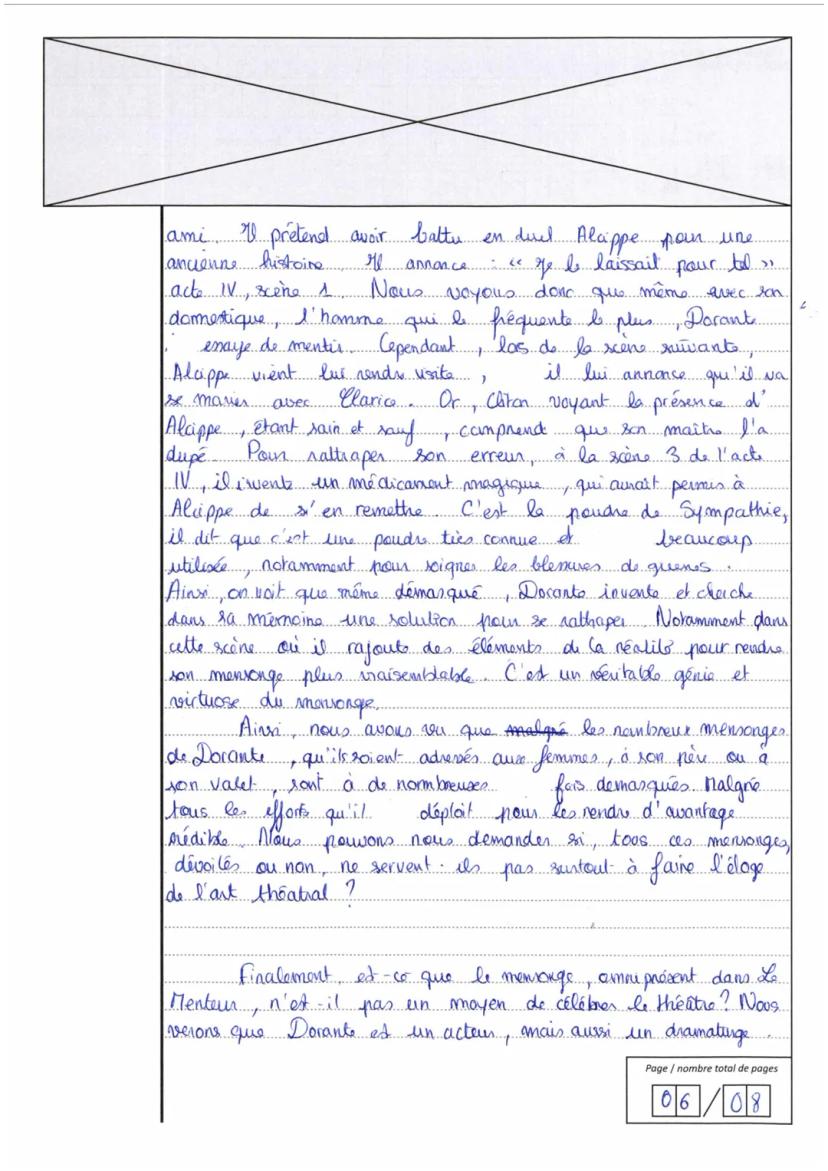 ami. Il prétend avoir battu en duel Alcippe pour une
ancienne histoire. Il annonce : « Je le laissait pour tel »
acte IV, scène 1. Nous voyons donc que même avec son
domestique, l'homme qui le fréquente le plus, Dorante
essaye de mentir. Cependant, lors de la scène suivante,
Alcippe vient lui rendre visite, il lui annonce qu'il va
se marier avec Clarice. Or, Cliton voyant la présence d'
Alcippe, étant sain et sauf, comprend que son maître l'a
dupé. Pour rattraper son erreur, à la scène 3 de l'acte
IV, il invente un médicament magique, qui aurait permis à
Alcippe de s'en remettre. C'est la poudre de Sympathie,
il dit que c'est une poudre très connue et beaucoup
utilisée, notamment pour soigner les blessures de guerres.
Ainsi, on voit que même démasqué, Dorante invente et cherche
dans sa mémoire une solution pour se rattraper. Notamment dans
cette scène où il rajoute des éléments de la réalité pour rendre
son mensonge plus vraisemblable. C'est un véritable génie et
virtuose du mensonge.
Ainsi, nous avons vu que malgré les nombreux mensonges
de Dorante, qu'ils soient adressés aux femmes, à son père ou à
son valet, sont à de nombreuses fois demasqués. Malgré
tous les efforts qu'il déploit pour les rendre d'avantage
crédible. Nous pouvons nous demander si, tous ces mensonges,
dévoilés ou non, ne servent-ils pas surtout à faire l'éloge
de l'art théatral ?
Finalement, est-ce que le mensonge, omniprésent dans Le
Menteur, n'est-il pas un moyen de célébrer le théâtre ? Nous
verons que Dorante est un acteur, mais aussi un dramaturge.
Page / nombre total de pages
06 / 08